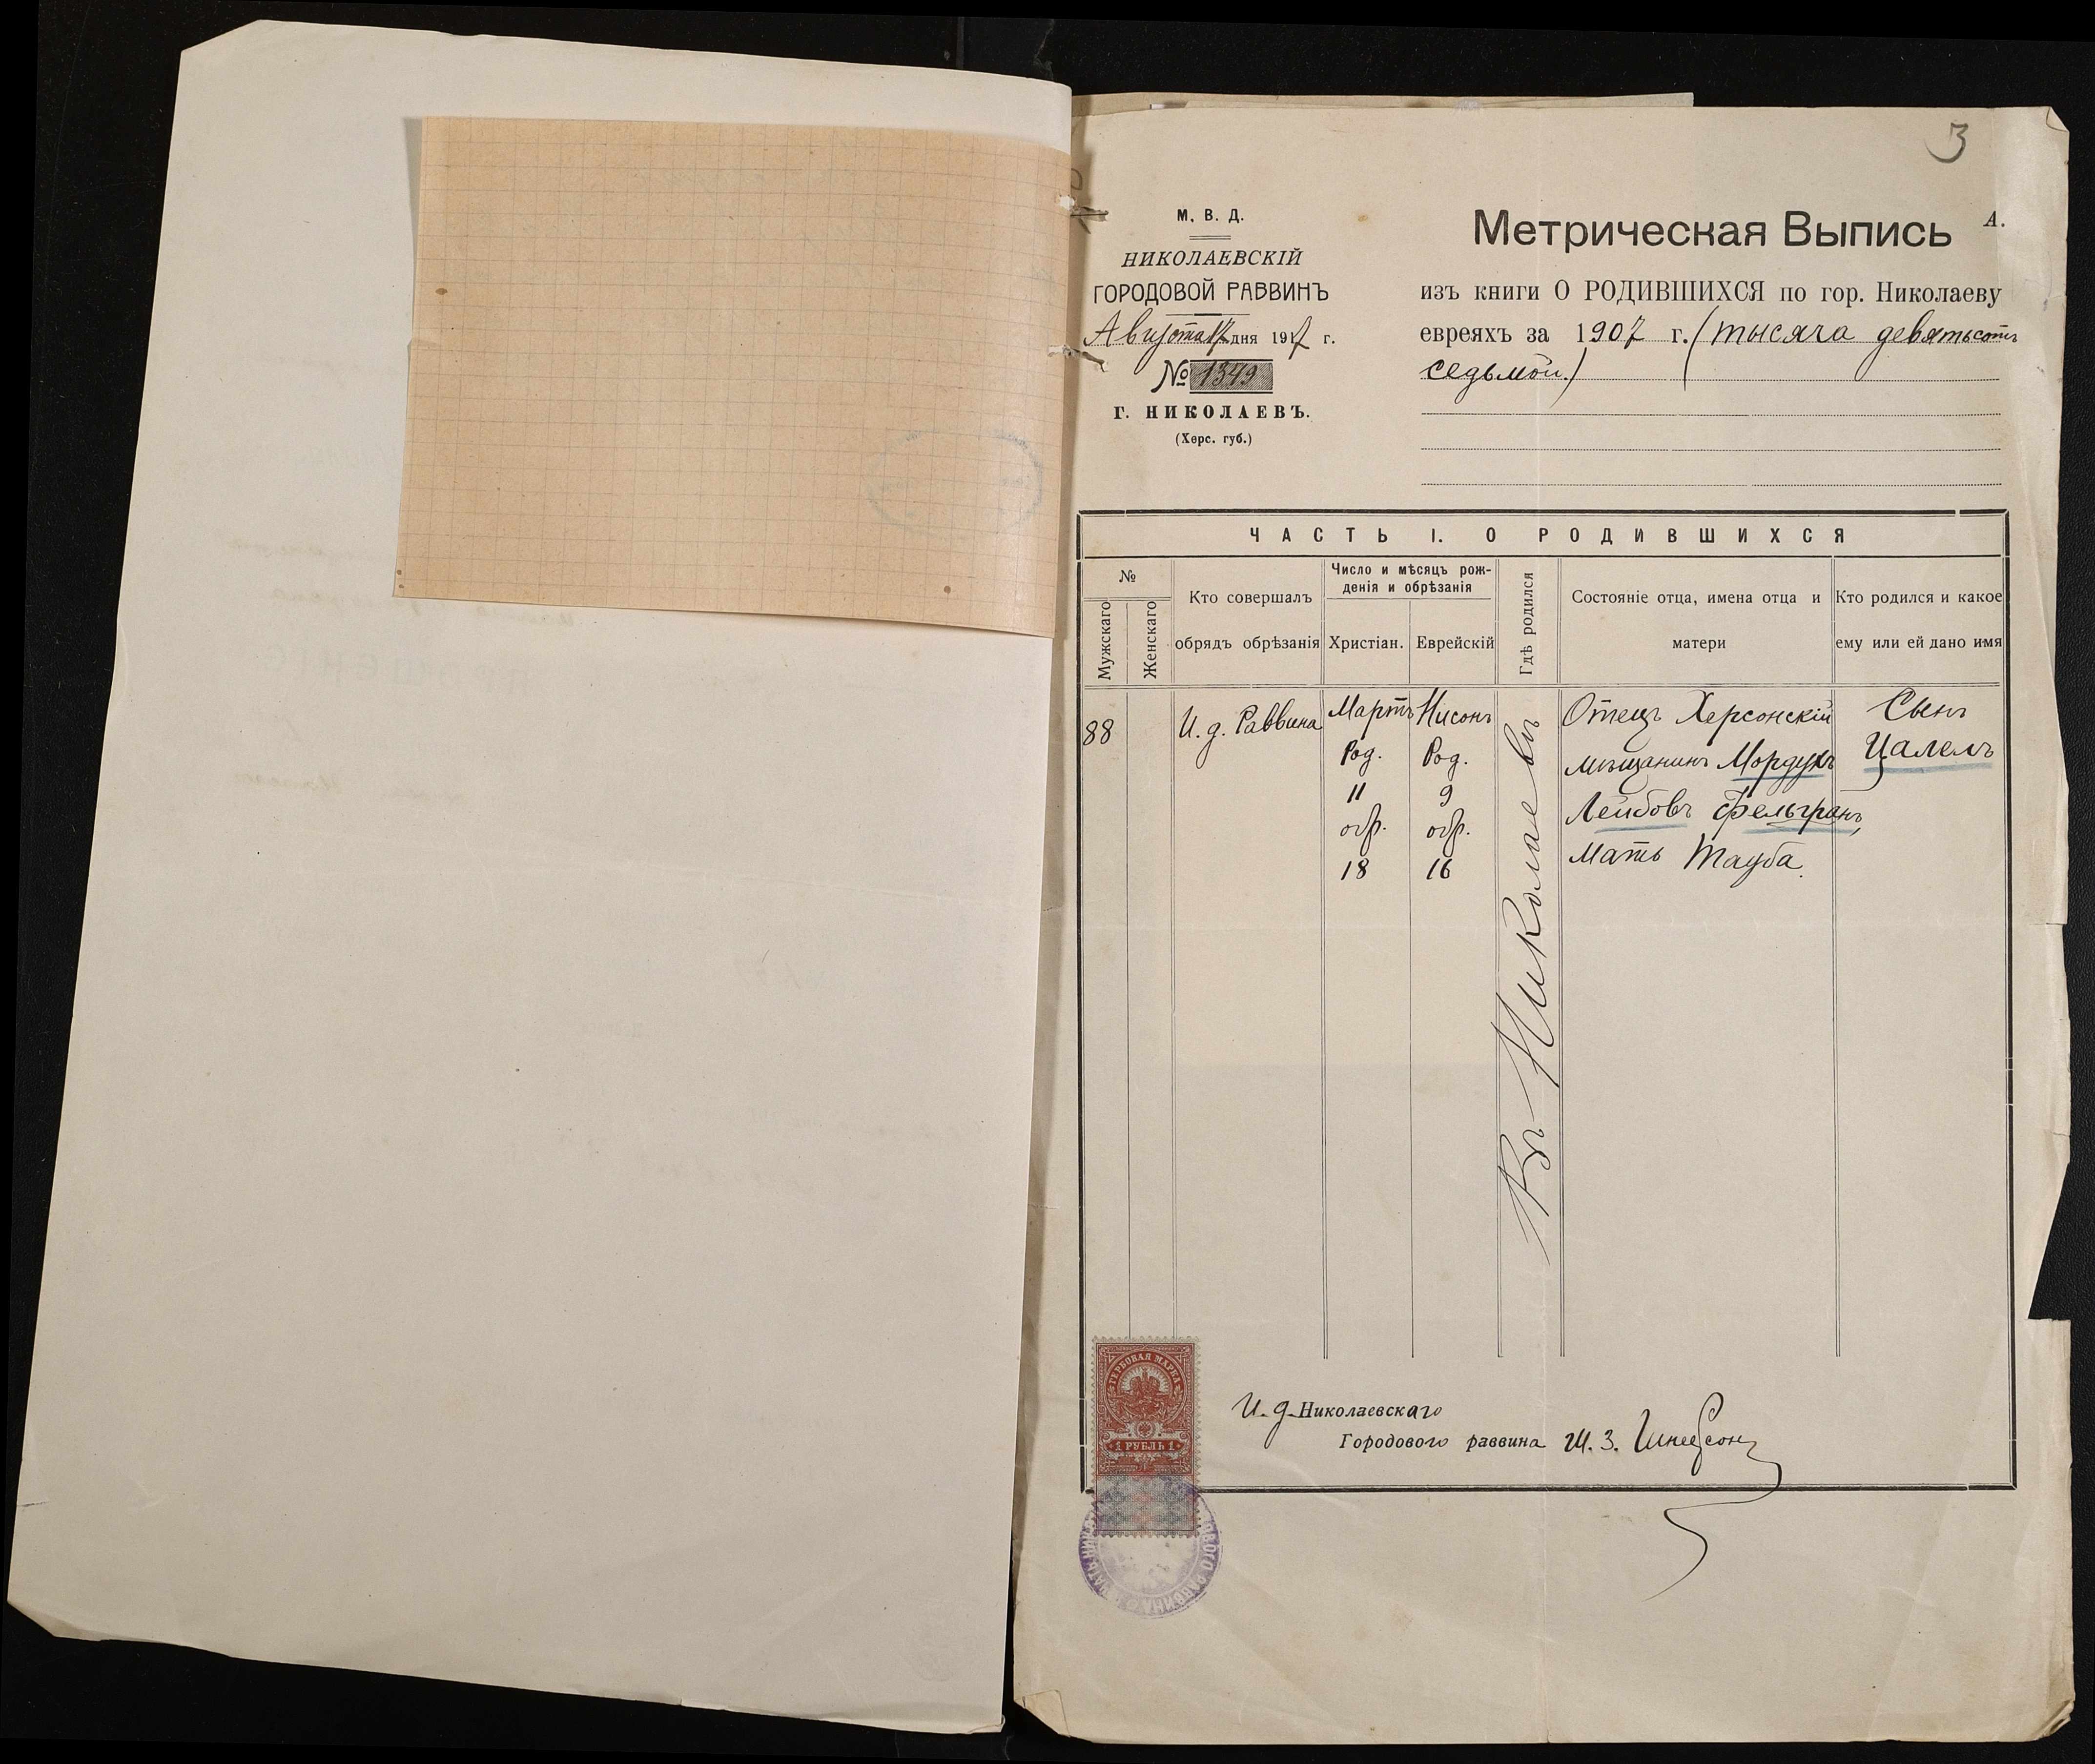 3
М. В. Д.
НИКОЛАЕВСКІЙ
ГОРОДОВОЙ РАВВИНЪ
Августа 17 дня 1917 г.
№ 1349
Г. НИКОЛАЕВЪ.
(Херс. губ.)
Метрическая Выпись А.
изъ книги О РОДИВШИХСЯ по гор. Николаеву
евреяхъ за 1907 г. (тысяча девятьсотъ
седьмой.)
ЧАСТЬ I. О РОДИВШИХСЯ
№
Мужскаго
Женскаго
Кто совершалъ
обрядъ обрѣзанія
Число и мѣсяцъ рож-
денія и обрѣзанія
Христіан.
Еврейскій
Гдѣ родился
Состояніе отца, имена отца и
матери
Кто родился и какое
ему или ей дано имя
88
И. д. Раввина
Мартъ
Род.
11
обр.
18
Нисонъ
Род.
9
обр.
16
Въ Николаевъ
Отецъ Херсонскій
мѣщанинъ Мордухъ
Лейбовъ Фельгранъ,
Мать Тауба.
Сынъ
Цалелъ
ГЕРБОВАЯ МАРКА
1 РУБЛЬ 1
И. д. Николаевскаго
Городового раввина Ш. З. Шнеерсонъ